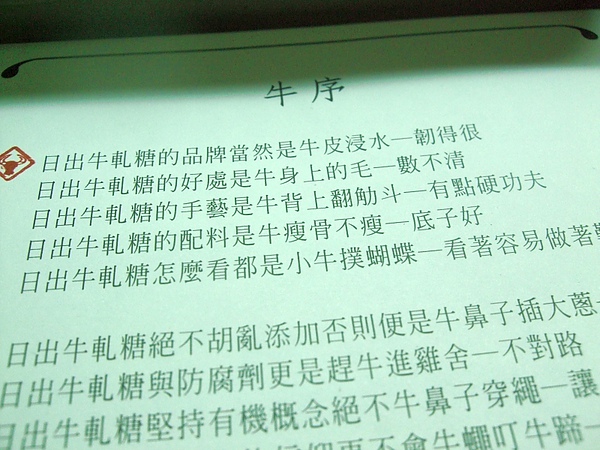 牛序
日出牛軋糖的品牌當然是牛皮浸水—韌得很
日出牛軋糖的好處是牛身上的毛—數不清
日出牛軋糖的手藝是牛背上翻觔斗—有點硬功夫
日出牛軋糖的配料是牛瘦骨不瘦—底子好
日出牛軋糖怎麼看都是小牛撲蝴蝶—看著容易做著難
日出牛軋糖絕不胡亂添加否則便是牛鼻子插大蔥—
日出牛軋糖與防腐劑更是趕牛進雞舍—不對路
日出牛軋糖堅持有機概念絕不牛鼻子穿繩—讓
更不會牛蠅叮牛蹄—